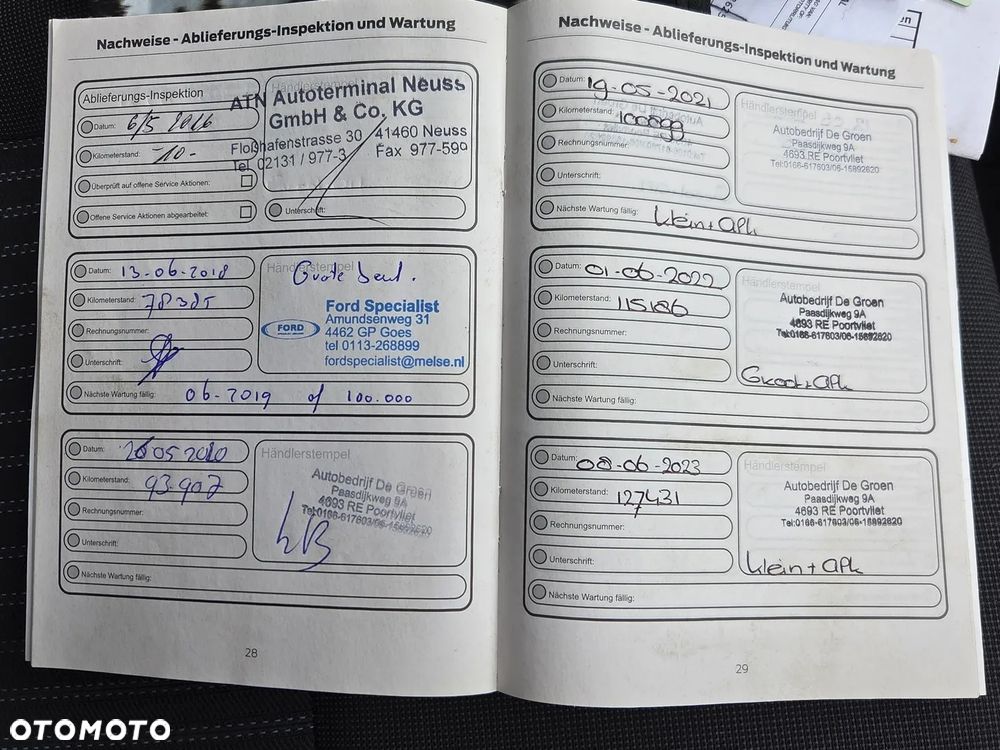 Nachweise - Ablieferungs-Inspektion und Wartung
Ablieferungs-Inspektion
Datum: 6/5 2016
Kilometerstand: -10-
Überprüft auf offene Service Aktionen:
Offene Service Aktionen abgearbeitet:
Händlerstempel
ATN Autoterminal Neuss
GmbH & Co. KG
Floßhafenstrasse 30 41460 Neuss
Tel. 02131 / 977-3 Fax 977-590
Unterschrift:
Datum: 13-06-2018
Kilometerstand: 78385
Rechnungsnummer:
Unterschrift:
Händlerstempel
Grote beurt.
FORD
Ford Specialist
Amundsenweg 31
4462 GP Goes
tel 0113-268899
fordspecialist@melse.nl
Nächste Wartung fällig: 06-2019 of 100.000
Datum: 05 2020
Kilometerstand: 93.907
Rechnungsnummer:
Unterschrift:
Händlerstempel
Autobedrijf De Groen
Paasdijkweg 9A
4693 RE Poortvliet
Tel:0166-617603/06-15892620
Nächste Wartung fällig:
28
Nachweise - Ablieferungs-Inspektion und Wartung
Datum: 19-05-2021
Kilometerstand: 100899
Rechnungsnummer:
Unterschrift:
Händlerstempel
Autobedrijf De Groen
Paasdijkweg 9A
4693 RE Poortvliet
Tel:0166-617603/06-15892620
Nächste Wartung fällig: klein + apk
Datum: 01-06-2022
Kilometerstand: 115186
Rechnungsnummer:
Unterschrift:
Händlerstempel
Autobedrijf De Groen
Paasdijkweg 9A
4693 RE Poortvliet
Tel:0166-617603/06-15892620
Groot + apk
Nächste Wartung fällig:
Datum: 08-06-2023
Kilometerstand: 127431
Rechnungsnummer:
Unterschrift:
Händlerstempel
Autobedrijf De Groen
Paasdijkweg 9A
4693 RE Poortvliet
Tel:0166-617603/06-15892620
klein + apk
Nächste Wartung fällig:
29
OTOMOTO